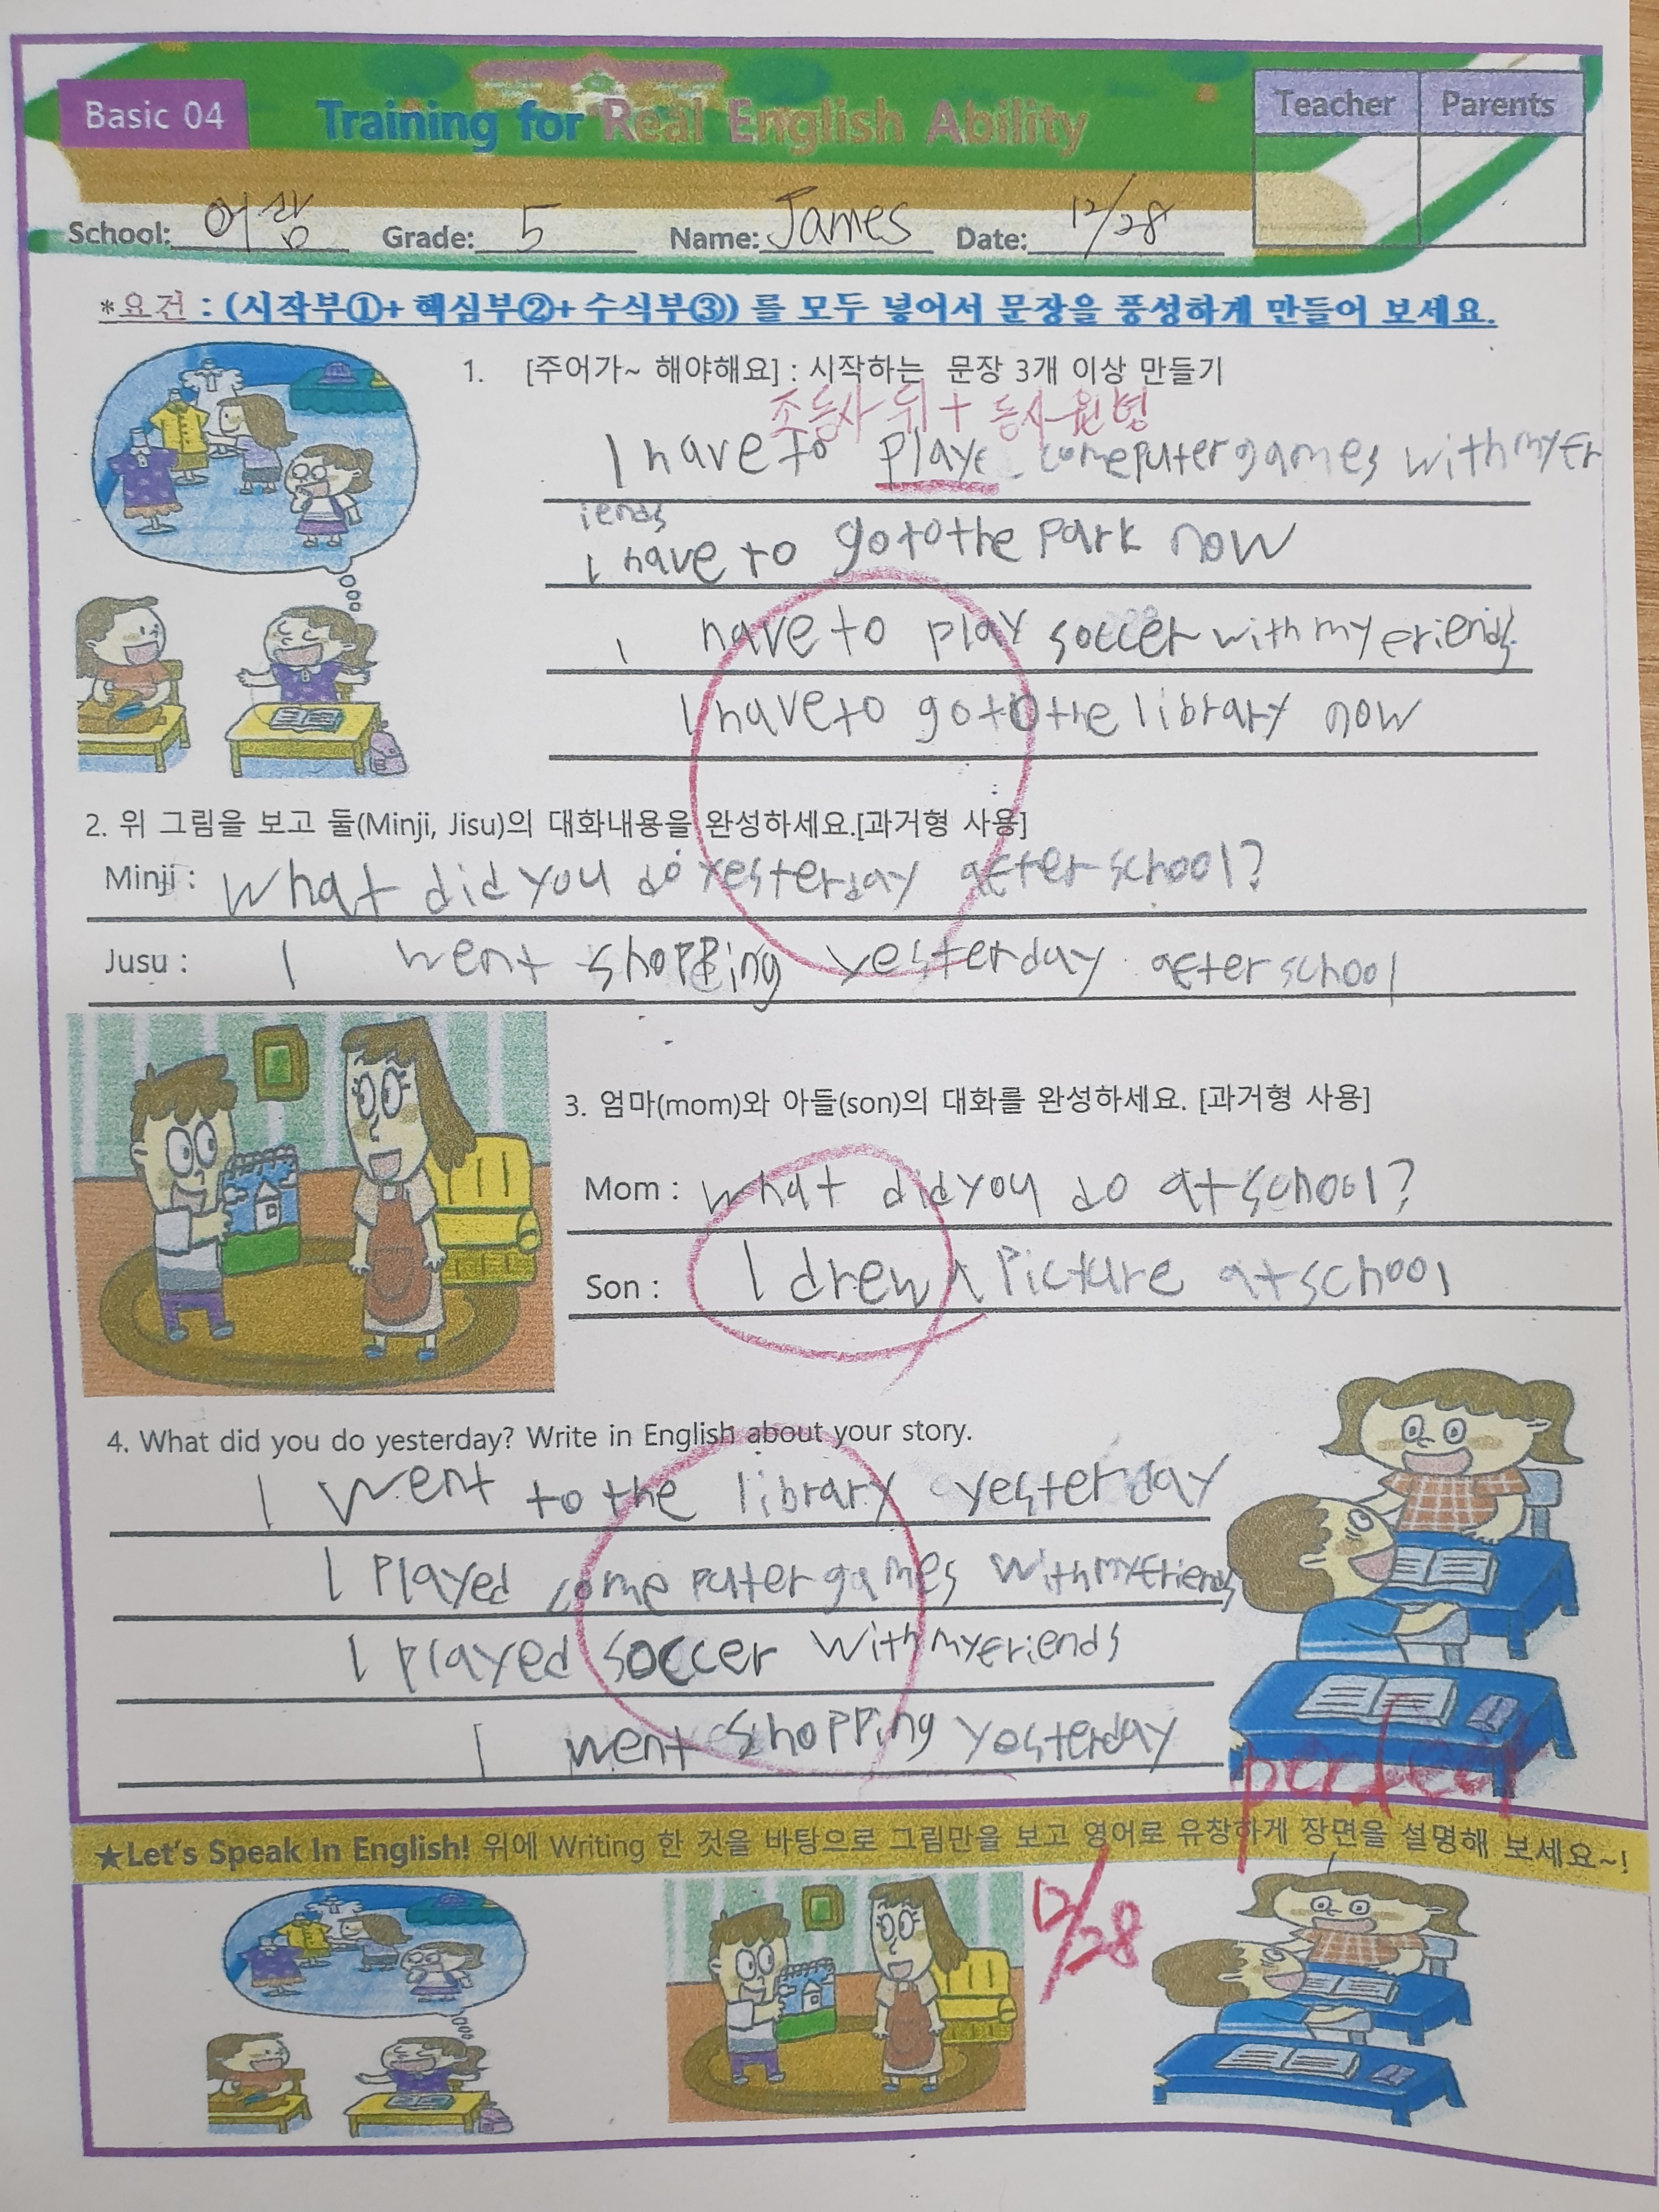 Basic 04
Training for Real English Ability
Teacher Parents
School: 어람 Grade: 5 Name: James Date: 12/28
*요건 : (시작부①+ 핵심부②+ 수식부③) 를 모두 넣어서 문장을 풍성하게 만들어 보세요.
1. [주어가~ 해야해요] : 시작하는 문장 3개 이상 만들기
조동사 뒤 + 동사원형
I have to play comeputer games with my fr
iends
I have to go to the park now
I have to play soccer with my friends.
I have to go to the library now
2. 위 그림을 보고 둘(Minji, Jisu)의 대화내용을 완성하세요.[과거형 사용]
Minji : What did you do yesterday after school?
Jusu : I went shopping yesterday after school
3. 엄마(mom)와 아들(son)의 대화를 완성하세요. [과거형 사용]
Mom : What did you do at school?
Son : I drew a picture at school
4. What did you do yesterday? Write in English about your story.
I went to the library yesterday
I played comeputer games with my friends
I played soccer with my friends
I went shopping yesterday
perfect
★Let's Speak In English! 위에 Writing 한 것을 바탕으로 그림만을 보고 영어로 유창하게 장면을 설명해 보세요~!
12/28